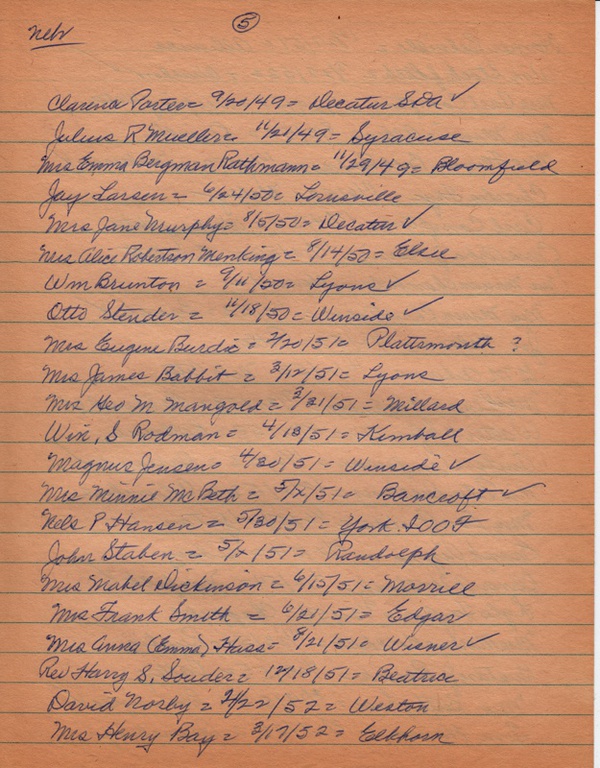 Nebr
5
Clarence Porter = 9/20/49 = Decatur SDA ✓
Julius R Mueller = 11/21/49 = Syracuse
Mrs Emma Bergman Rathmann = 11/29/49 = Bloomfield
Jay Larsen = 6/24/50 = Lorusville
Mrs Jane Murphy = 8/5/50 = Decatur ✓
Mrs Alice Robertson Menking = 8/14/50 = Elsie
Wm Brunton = 9/11/50 = Lyons ✓
Otto Stender = 11/18/50 = Winside ✓
Mrs Eugene Burdic = 2/20/51 = Plattsmouth ?
Mrs James Babbit = 3/12/51 = Lyons
Mrs Geo M Mangold = 3/21/51 = Millard
Win, S Rodman = 4/13/51 = Kimball
Magnus Jensen = 4/30/51 = Winside ✓
Mrs Minnie McBeth = 5/2/51 = Bancroft ✓
Nels P Hansen = 5/30/51 = York IOOF
John Staben = 5/2/51 = Randolph
Mrs Mabel Dickinson = 6/15/51 = Morrill
Mrs Frank Smith = 6/21/51 = Edgar
Mrs Anna (Emma) Hass = 8/21/51 = Wisner ✓
Rev Harry S. Souder = 12/18/51 = Beatrice
David Norby = 2/22/52 = Weston
Mrs Henry Bay = 3/17/52 = Elkhorn